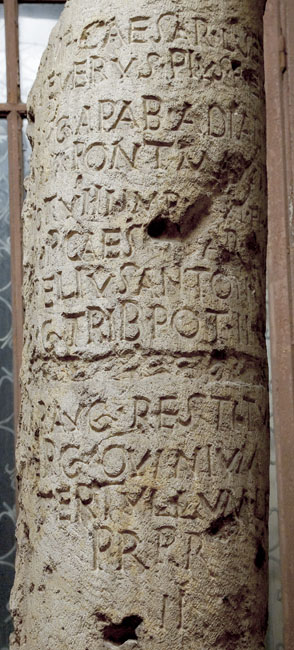 CAESAR·L·S
EVERVS·PIVS·
VG·APAB·ADIA
PONT·M
TVIIIIMP·
P·CAES· AR
ELIVS·ANTON
G·TRIB·POT·III
AVG·RESTITV
P·G·QVINIVM
TERTVLLVM·
P·R·P·P
II